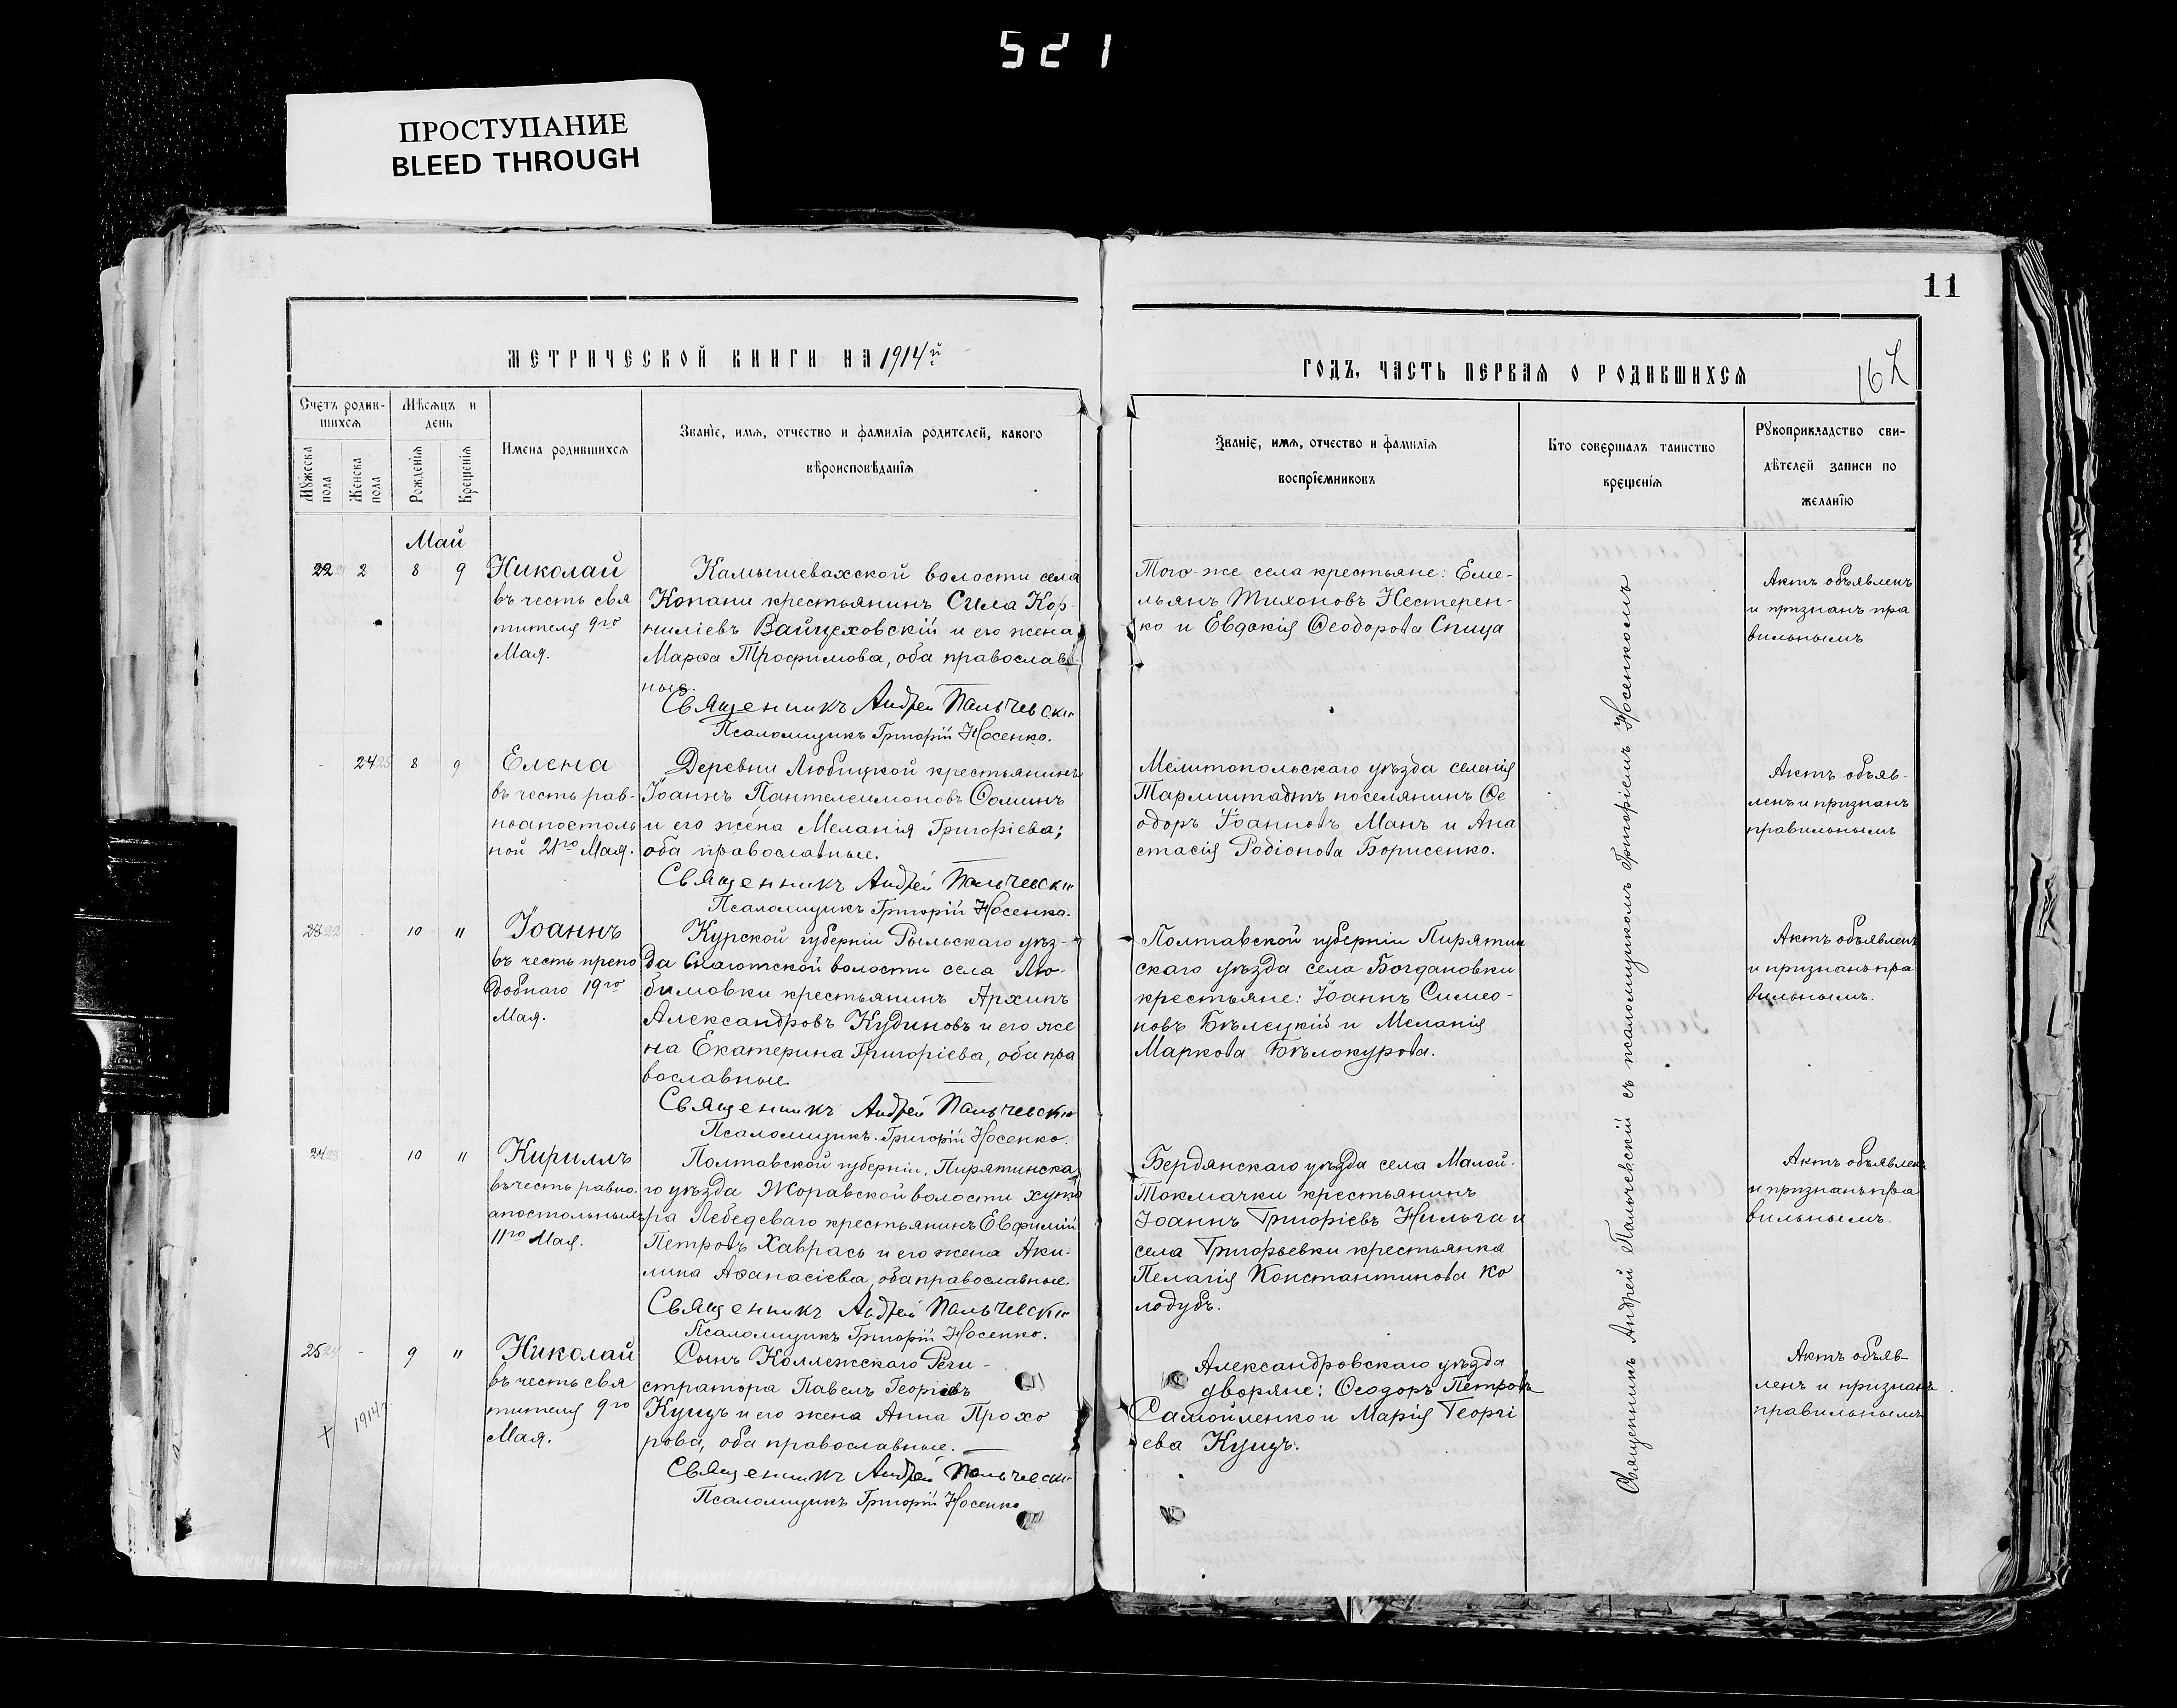 521
ПРОСТУПАНИЕ
BLEED THROUGH
11
МЕТРИЧЕСКОЙ КНИГИ НА 1914й
ГОДЪ, ЧАСТЬ ПЕРВАЯ О РОДИВШИХСЯ
Счетъ родив-
шихся
Мѣсяцъ и
день
Мужеска
пола
Женска
пола
Рожденія
Крещенія
Имена родившихся
Званіе, имя, отчество и фамилія родителей, какого
вѣроисповѣданія
Званіе, имя, отчество и фамилія
воспріемниковъ
Кто совершалъ таинство
крещенія
Рукоприкладство сви-
дѣтелей записи по
желанію
Май
22 2 8 9
Николай
въ честь свя
тителя 9го
Мая.
Камышевахской волости села
Копани крестьянинъ Сила Кор-
ниліевъ Вайцеховскій и его жена
Марѳа Трофимова, оба православ-
ные.
Священникъ Андрей Пальчевскій
Псаломщикъ Григорій Носенко.
Того-же села крестьяне: Еме-
льянъ Тихоновъ Нестерен-
ко и Евдокія Ѳеодорова Спица
Актъ объявленъ
и признанъ пра
вильнымъ
24 8 9
Елена
въ честь рав-
ноапостоль
ной 21го Мая.
Деревни Любицкой крестьянинъ
Іоаннъ Пантелеимоновъ Соминъ
и его жена Меланія Григоріева;
оба православные.
Священникъ Андрей Пальчевскій
Псаломщикъ Григорій Носенко.
Мелитопольскаго уѣзда селенія
Тармштадтъ поселянинъ Ѳе
одоръ Іоанновъ Манъ и Ана
стасія Родіонова Борисенко.
Актъ объяв-
ленъ и признанъ
правильнымъ
23 10 "
Іоаннъ
въ честь препо
добнаго 19го
Мая.
Курской губерніи Рыльскаго уѣз-
да волости села Лю-
бимовки крестьянинъ Архипъ
Александровъ Кудиновъ и его же
на Екатерина Григоріева, оба пра
вославные.
Священникъ Андрей Пальчевскій
Псаломщикъ Григорій Носенко.
Полтавской губерніи Пирятин
скаго уѣзда села Богдановки
крестьяне: Іоаннъ Симео-
новъ Бѣлецкій и Меланія
Маркова Бѣлокурова.
Актъ объявленъ
и признанъ пра
вильнымъ.
24 10 "
Кириллъ
въ честь равно-
апостольныхъ
11го Мая.
Полтавской губерніи, Пирятинска
го уѣзда Жоравской волости хуто
ра Лебедеваго крестьянинъ Евфимій
Петровъ Хаврась и его жена Аки-
лина Аѳанасіева, оба православные.
Священникъ Андрей Пальчевскій
Псаломщикъ Григорій Носенко.
Бердянскаго уѣзда села Малой-
Токмачки крестьянинъ
Іоаннъ Григоріевъ Нильга и
села Григорьевки крестьянка
Пелагія Константинова Ко
лодубъ.
Актъ объявленъ
и признанъ пра
вильнымъ.
25 - 9 "
Николай
въ честь свя
тителя 9го
Мая.
Сынъ Коллежскаго Реги-
стратора Павелъ Георгіевъ
Кущъ и его жена Анна Прохо
рова, оба православные.
Священникъ Андрей Пальчевскій
Псаломщикъ Григорій Носенко
Александровскаго уѣзда
дворяне: Ѳеодоръ Петровъ
Самойленко и Марія Георгі
ева Кущъ.
Актъ объяв-
ленъ и признанъ
правильнымъ
Священникъ Андрей Пальчевскій съ псаломщикомъ Григоріемъ Носенкомъ